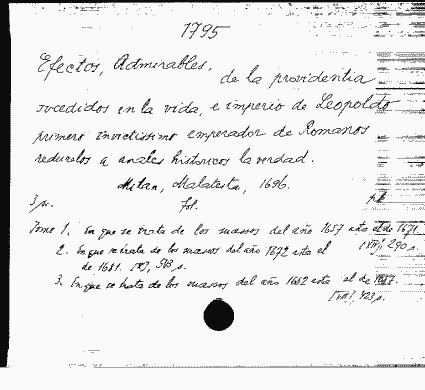 1795
Efectos, Admirables, de la providentia
sucedidos en la vida, e imperio de Leopoldo
primero invictissimo emperador de Romanos
reduzelos a anales historicos la verdad.
Milan, Malatesta, 1696.
3 fol.
Tomo 1. En que se trata de los sucesos del año 1657 asta el de 1671.
290 p.
2. En que se trata de los sucesos del año 1672 asta el
de 1681.
3. En que se trata de los sucesos del año 1682 asta el de
423 p.